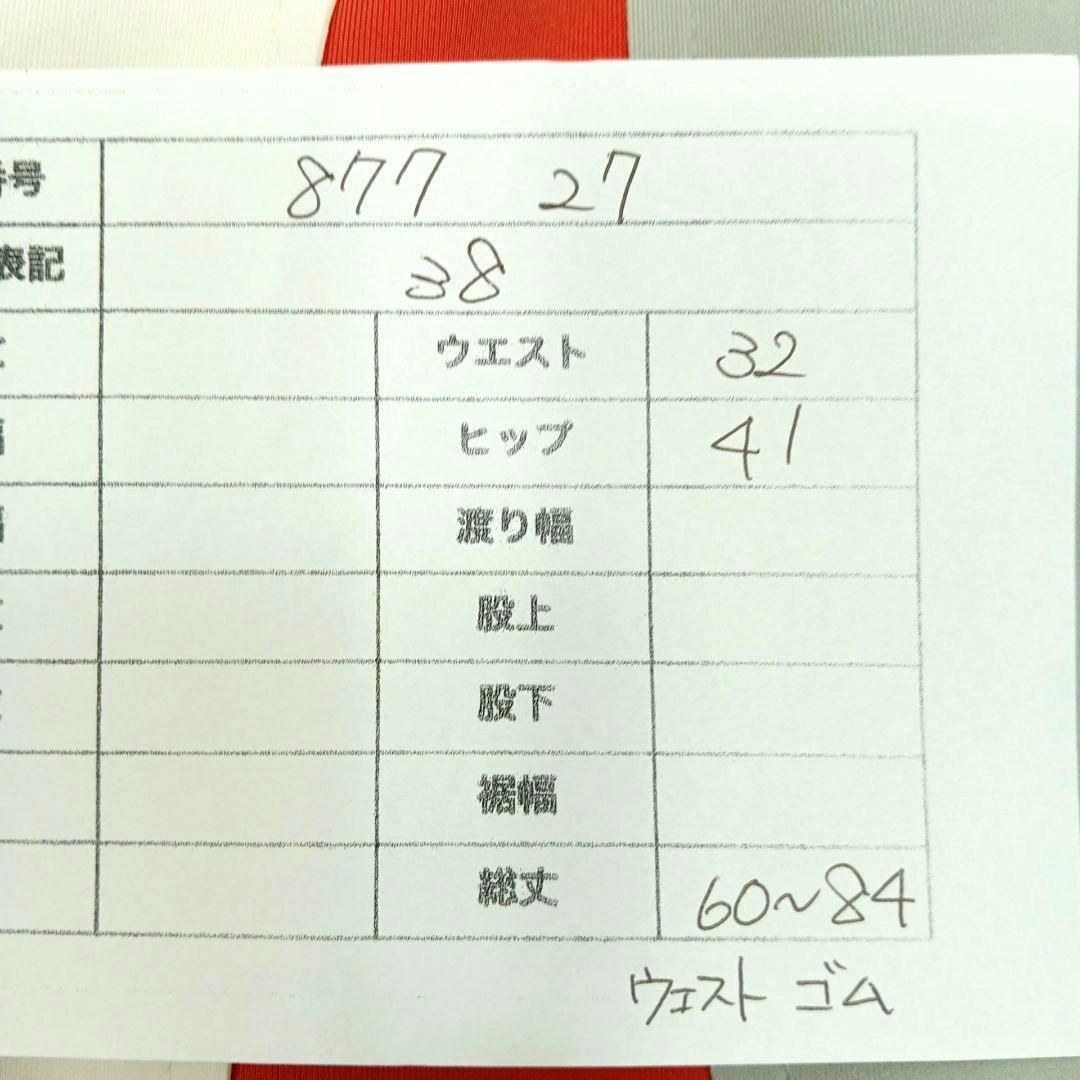 号 877 27
表記 38
ウエスト 32
ヒップ 41
渡り幅
股上
股下
裾幅
総丈 60~84
ウエスト ゴム